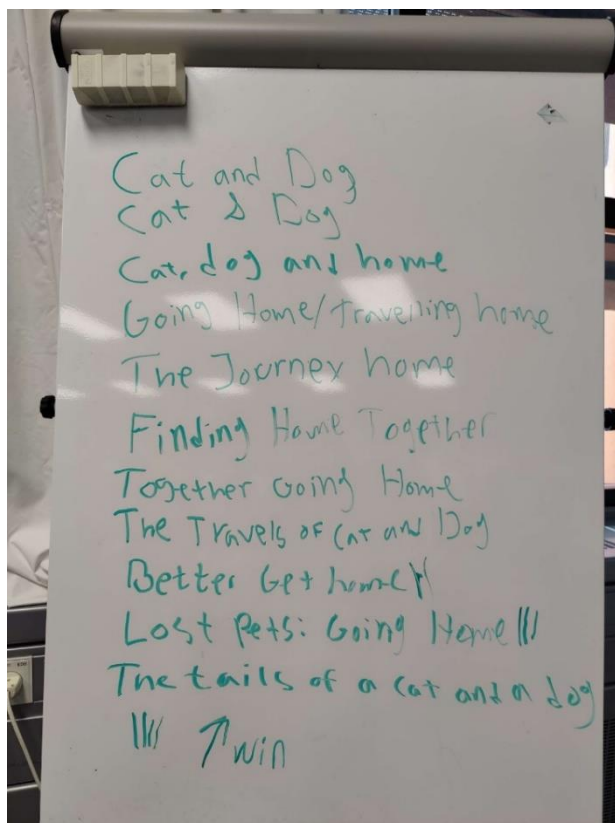 Cat and Dog
Cat & Dog
Cat, dog and home
Going Home/Travelling home
The Journey home
Finding Home Together
Together Going Home
The Travels of Cat and Dog
Better Get home ||
Lost Pets: Going Home |||
The tails of a cat and a dog
|||| ↑ win